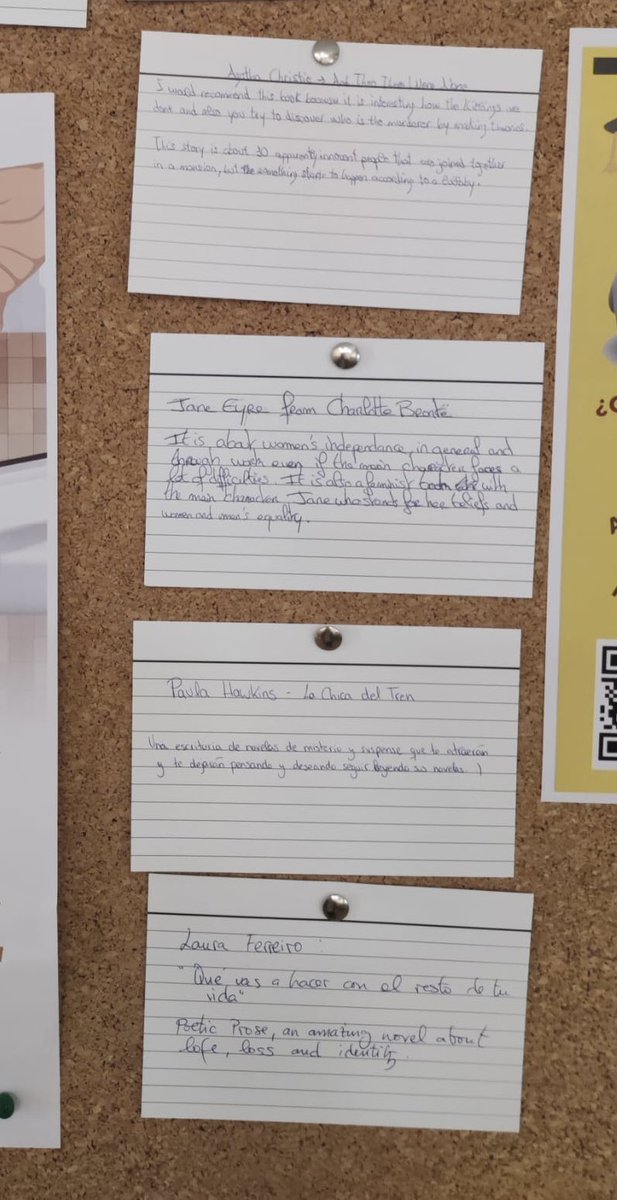 Agatha Christie → And Then There Were None
I would recommend this book because it is interesting how the killings are
dont and also you try to discover who is the murderer by making theories.
This story is about 10 apparently innocent people that are joined together
in a mansion, but the something starts to happen according to a lullaby.
Jane Eyre from Charlotte Brontë
It is about women's independance, in general and
through work even if the main character faces a
lot of difficulties. It is also a feminist book with
the main character Jane who stands for her beliefs and
women and men's equality.
Paula Hawkins - La Chica del Tren
Una escritoria de novelas de misterio y suspense que te atraerán
y te dejarán pensando y deseando seguir leyendo sus novelas :)
Laura Ferreiro :
"Qué vas a hacer con el resto de tu
vida"
Poetic Prose, an amazing novel about
life, loss and identity.